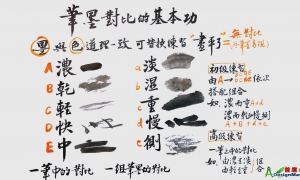 筆墨對比的基本功
墨與色道理一致 可替換練習
"畫平"=無對比
A 濃 a 淡
B 乾 b 濕
C 輕 c 重
D 快 d 慢
E 中 e 側
初級練習
由A→ 依次
搭配組合
如. 濃而重A+c
濃而乾而慢側
A+B+d+e
高級練習
一筆之中的對比
如由濃至淡
一筆中的對比 一組筆的對比